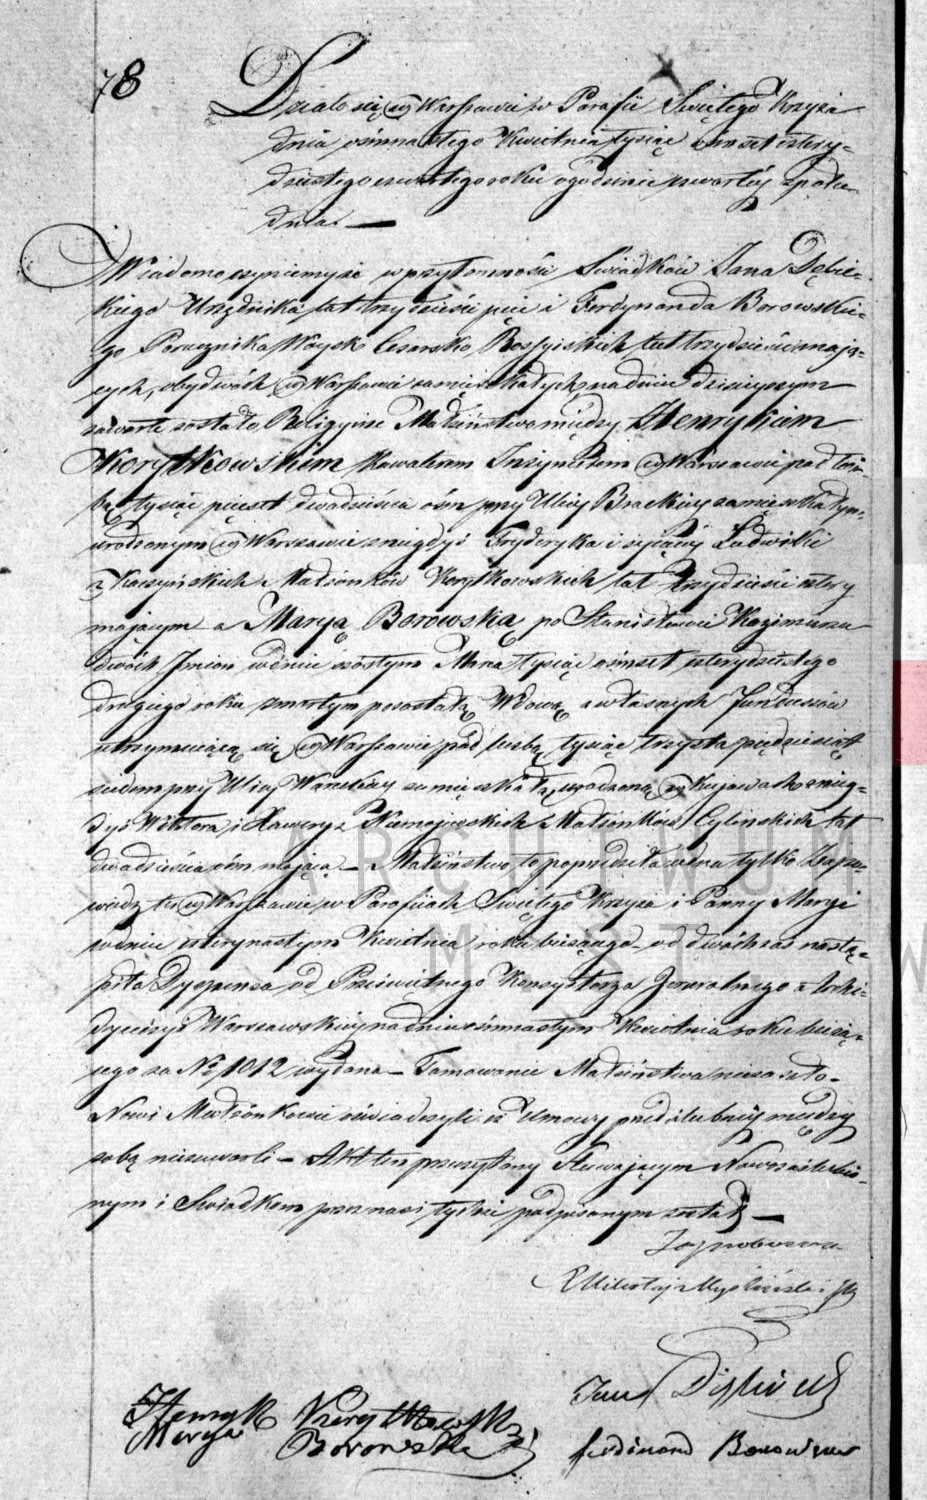 78
Działo się w Warszawie w Parafii Świętego Krzyża
dnia ósmnastego Kwietnia tysiąc ośmset cztery-
dziestego czwartego roku o godzinie czwartéj z połu-
dnia. —
Wiadomo czyniemy że w przytomności Świadków Jana Dębic-
kiego Urzędnika lat trzydzieści pięć i Ferdynanda Borowskie-
go Porucznika Woysk Cesarsko Rossyiskich lat trzydzieści mają-
cych, obydwóch w Warszawie zamieszkałych, na dniu dzisieyszym
zawarte zostało Religijne Małżeństwo między Henrykiem
Korytkowskim Kawalerem Inżynierem w Warszawie pod licz-
bą tysiąc pięćset dwadzieścia ośm przy Ulicy Brackiéy zamieszkałym,
urodzonym w Warszawie z niegdyś Fryderyka i żyjącéy Ludwiki
z Kaczyńskich Małżonków Korytkowskich lat trzydzieści cztery
mającym a Maryą Borowską po Stanisławie Kazimierzu
dwóch Imion w dniu szóstym Maja tysiąc ośmset czterydziestego
drugiego roku zmarłym pozostałą Wdową z własnych Funduszów
utrzymuiącą się w Warszawie pod liczbą tysiąc trzysta pięćdziesiąt
siedem przy Ulicy Wareckiéy zamieszkałą, urodzoną w Kujawach z nieg-
dyś Wiktora i Xawery z Niemojewskich Małżonków Cylinskich lat
dwadzieścia ośm mającą — Małżeństwo to poprzedziła iedna tylko Zapo-
wiedź tu w Warszawie w Parafiach Świętego Krzyża i Panny Maryi
w dniu czternastym Kwietnia roku bieżącego — od dwóch zaś nastą-
piła Dyspensa od Prześwietnego Konsystorza Jeneralnego Archi-
dyecezyi Warszawskiéy na dniu ośmnastym Kwietnia roku bieżą-
cego za No 1012 wydana — Tamowanie Małżeństwa nie zaszło —
Nowi Małżonkowie oświadczyli iż Umowy przedślubnéy między
sobą nie zawarli — Akt ten przeczytany Stawającym Nowozaślubio-
nym i Świadkom przez nas i tychże podpisanym został —
Jan Dębicki
Henryk Korytkowski
Marya Borowska
Ferdinand Borowski
ARCHIWUM
M. ST. W